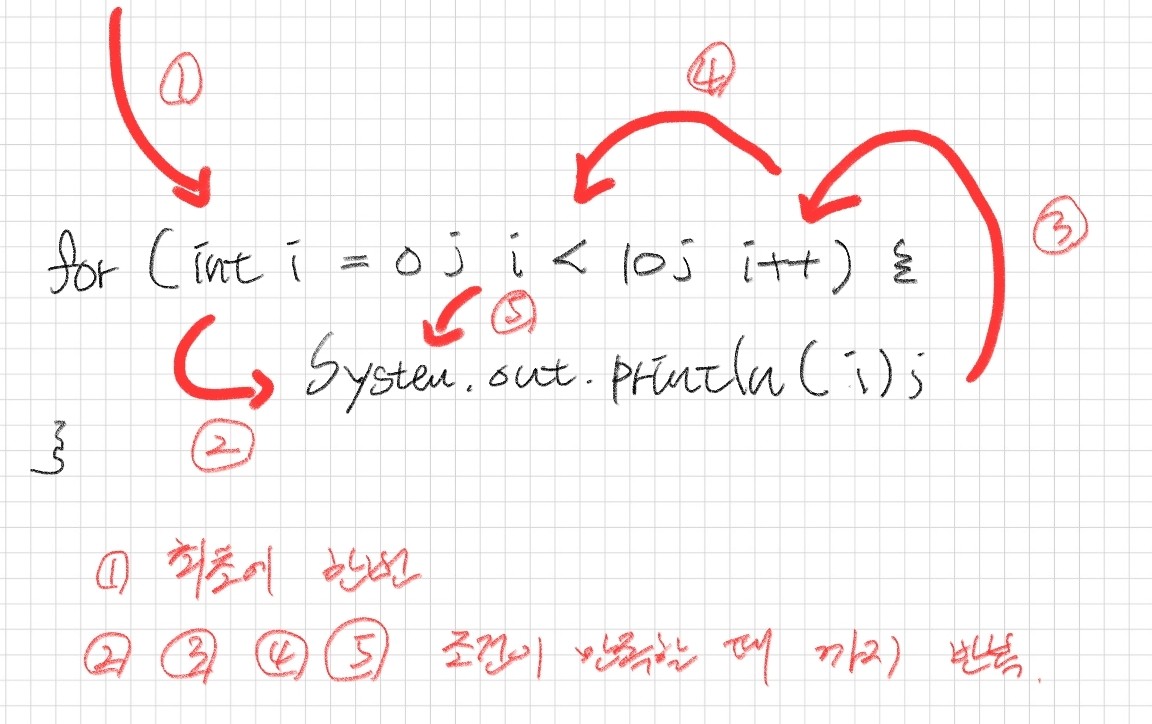 ① ④
③
for (int i = 0; i < 10; i++) {
⑤
System.out.println(i);
②
}
① 최초에 한번
② ③ ④ ⑤ 조건이 만족할 때 까지 반복.